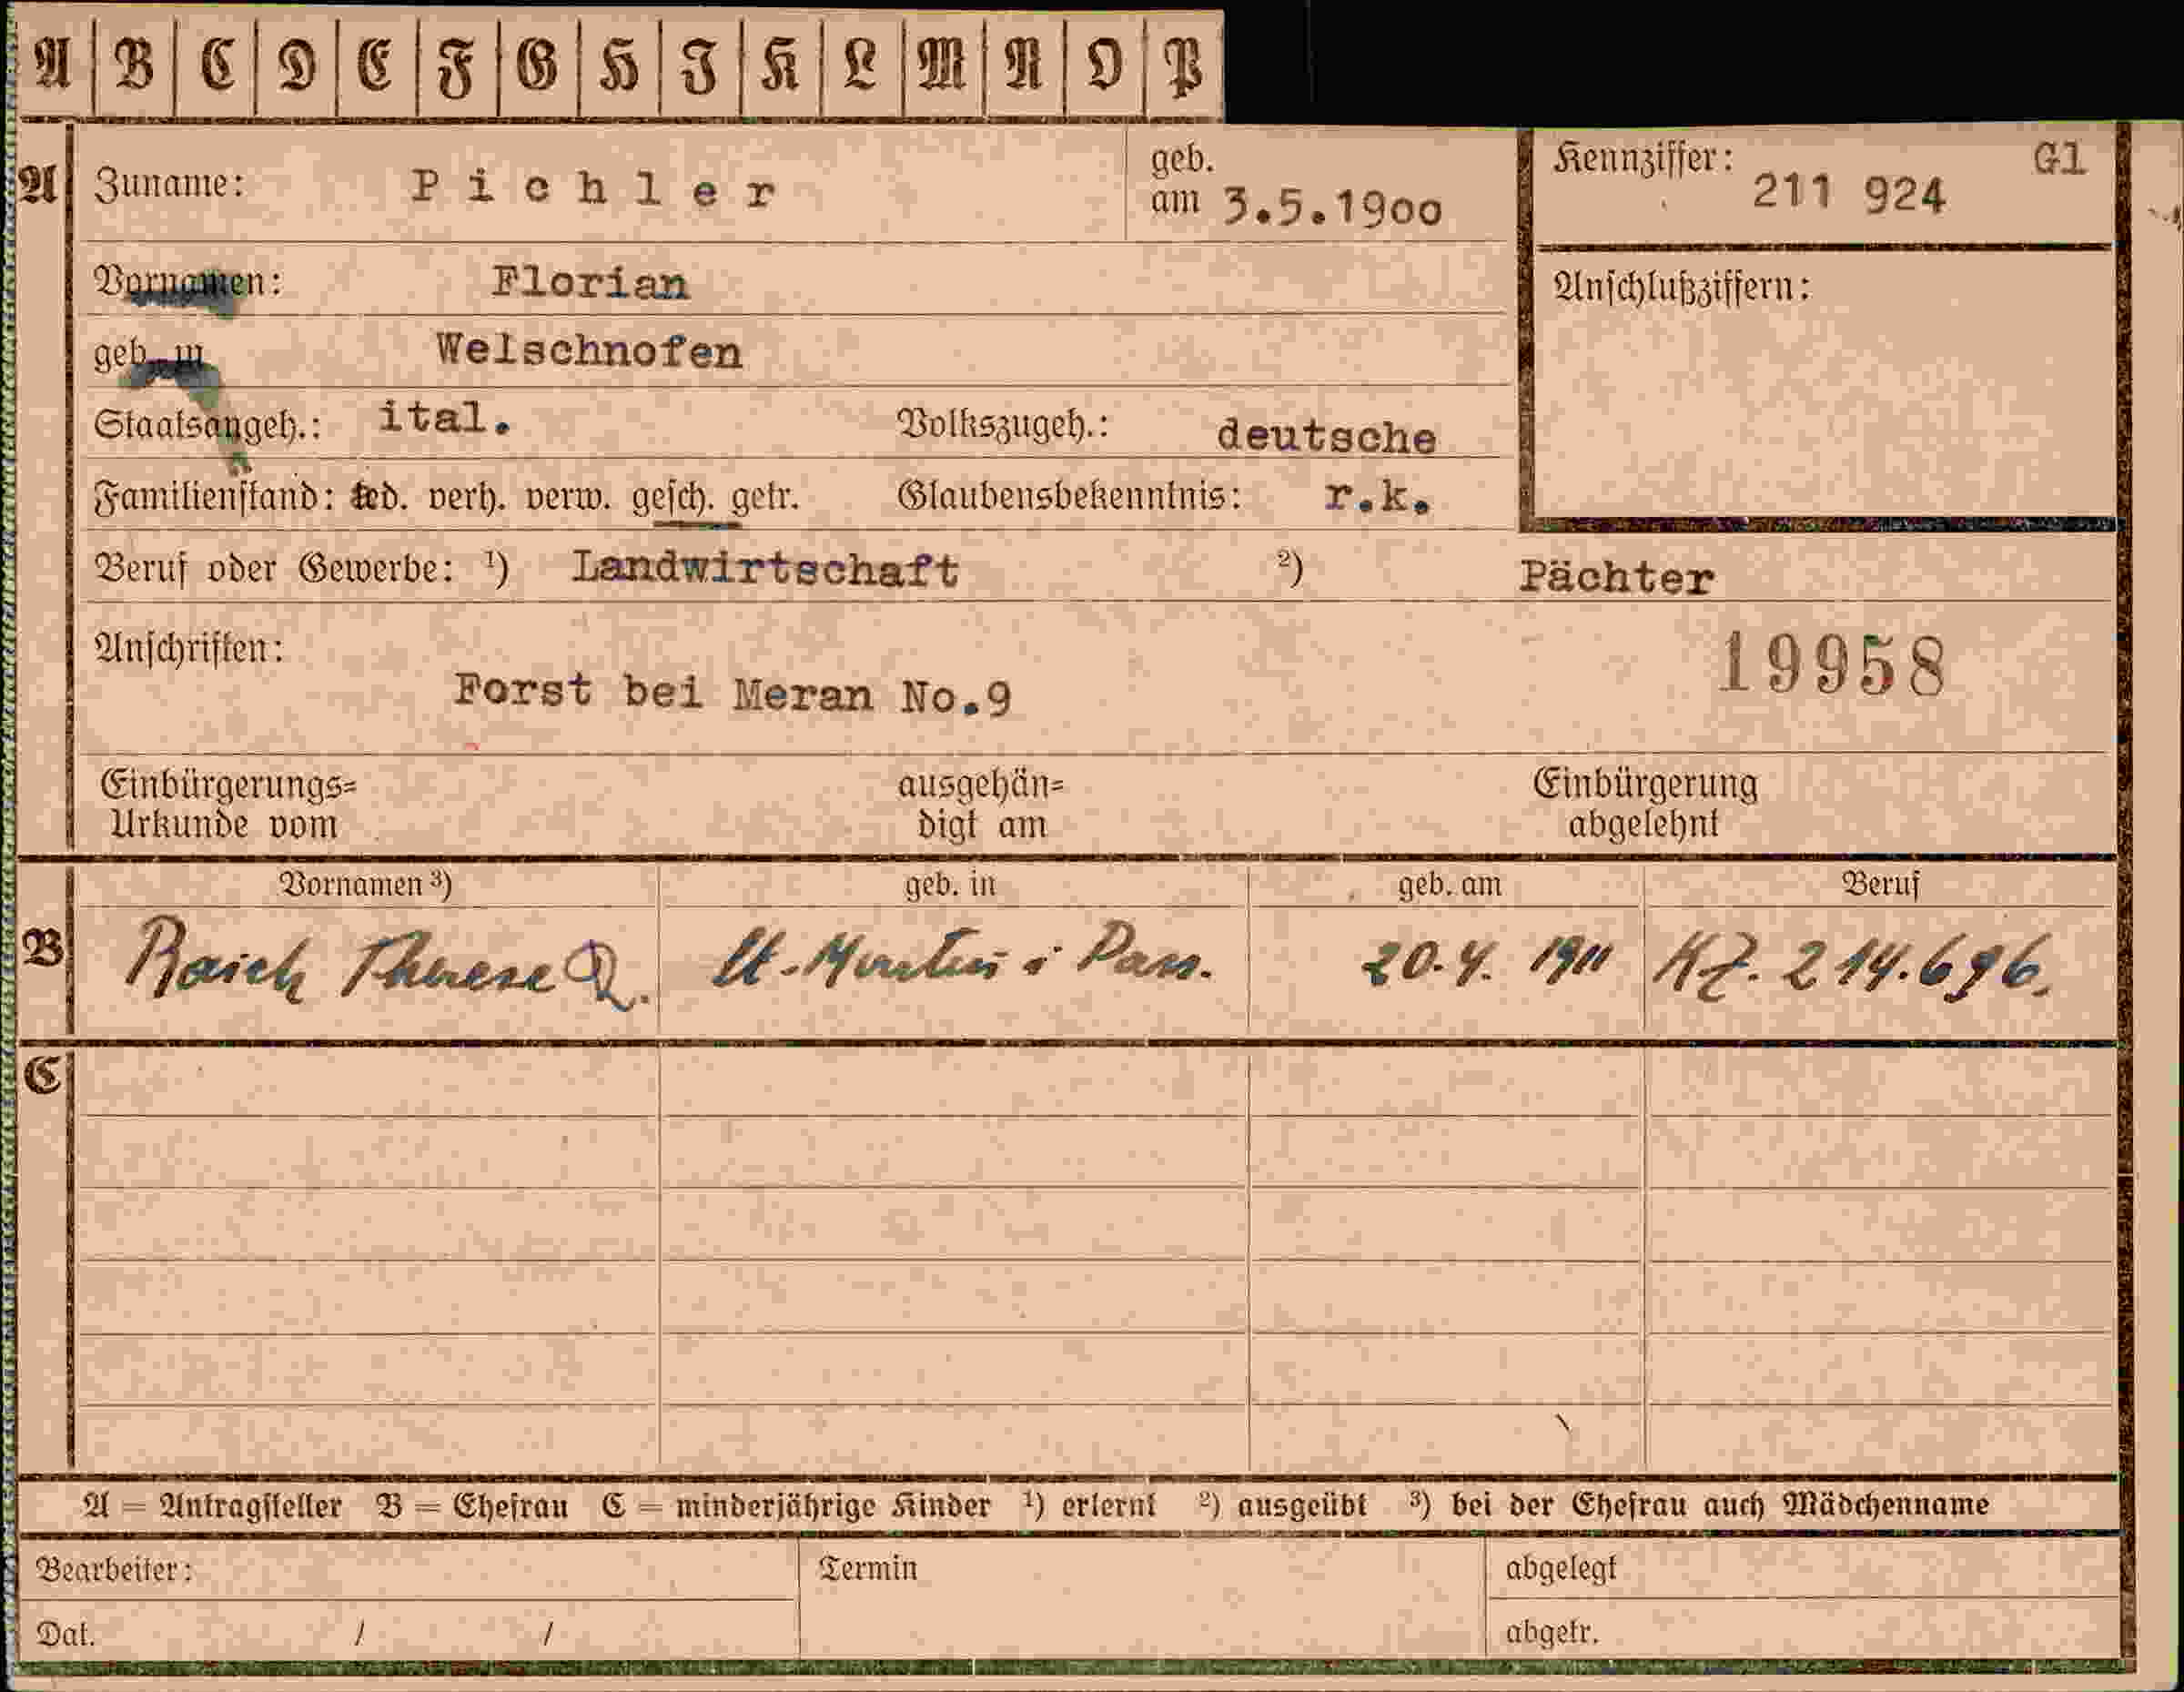 A B C D E F G H I K L M N O P
A Zuname: Pichler geb. am 3.5.1900 Kennziffer: 211 924 Gl
Vornamen: Florian Anschlußziffern:
geb. in Welschnofen
Staatsangeh.: ital. Volkszugeh.: deutsche
Familienstand: led. verh. verw. gesch. getr. Glaubensbekenntnis: r.k.
Beruf oder Gewerbe: ¹) Landwirtschaft ²) Pächter
Anschriften: 19958
Forst bei Meran No.9
Einbürgerungs= ausgehän= Einbürgerung
Urkunde vom digt am abgelehnt
Vornamen ³) geb. in geb. am Beruf
B Raich Therese St. Martin i Pass. 20.4. 1911 KZ. 214.696.
C
A = Antragsteller B = Ehefrau C = minderjährige Kinder ¹) erlernt ²) ausgeübt ³) bei der Ehefrau auch Mädchenname
Bearbeiter: Termin abgelegt
Dat. / / abgetr.